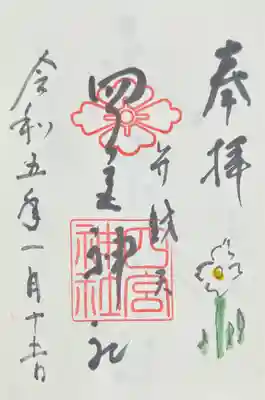 奉拝
弁財天
四宮神社
四宮
神社
令和五年一月十五日